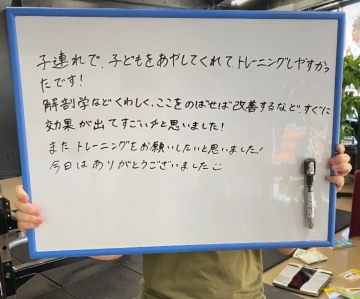 子連れで、子どもをあやしてくれて、トレーニングしやすかっ
たです!
解剖学などくわしく、ここをのばせば改善するなど、すぐに
効果が出てすごいナと思いました!
またトレーニングをお願いしたいと思いました!
今日はありがとうございました